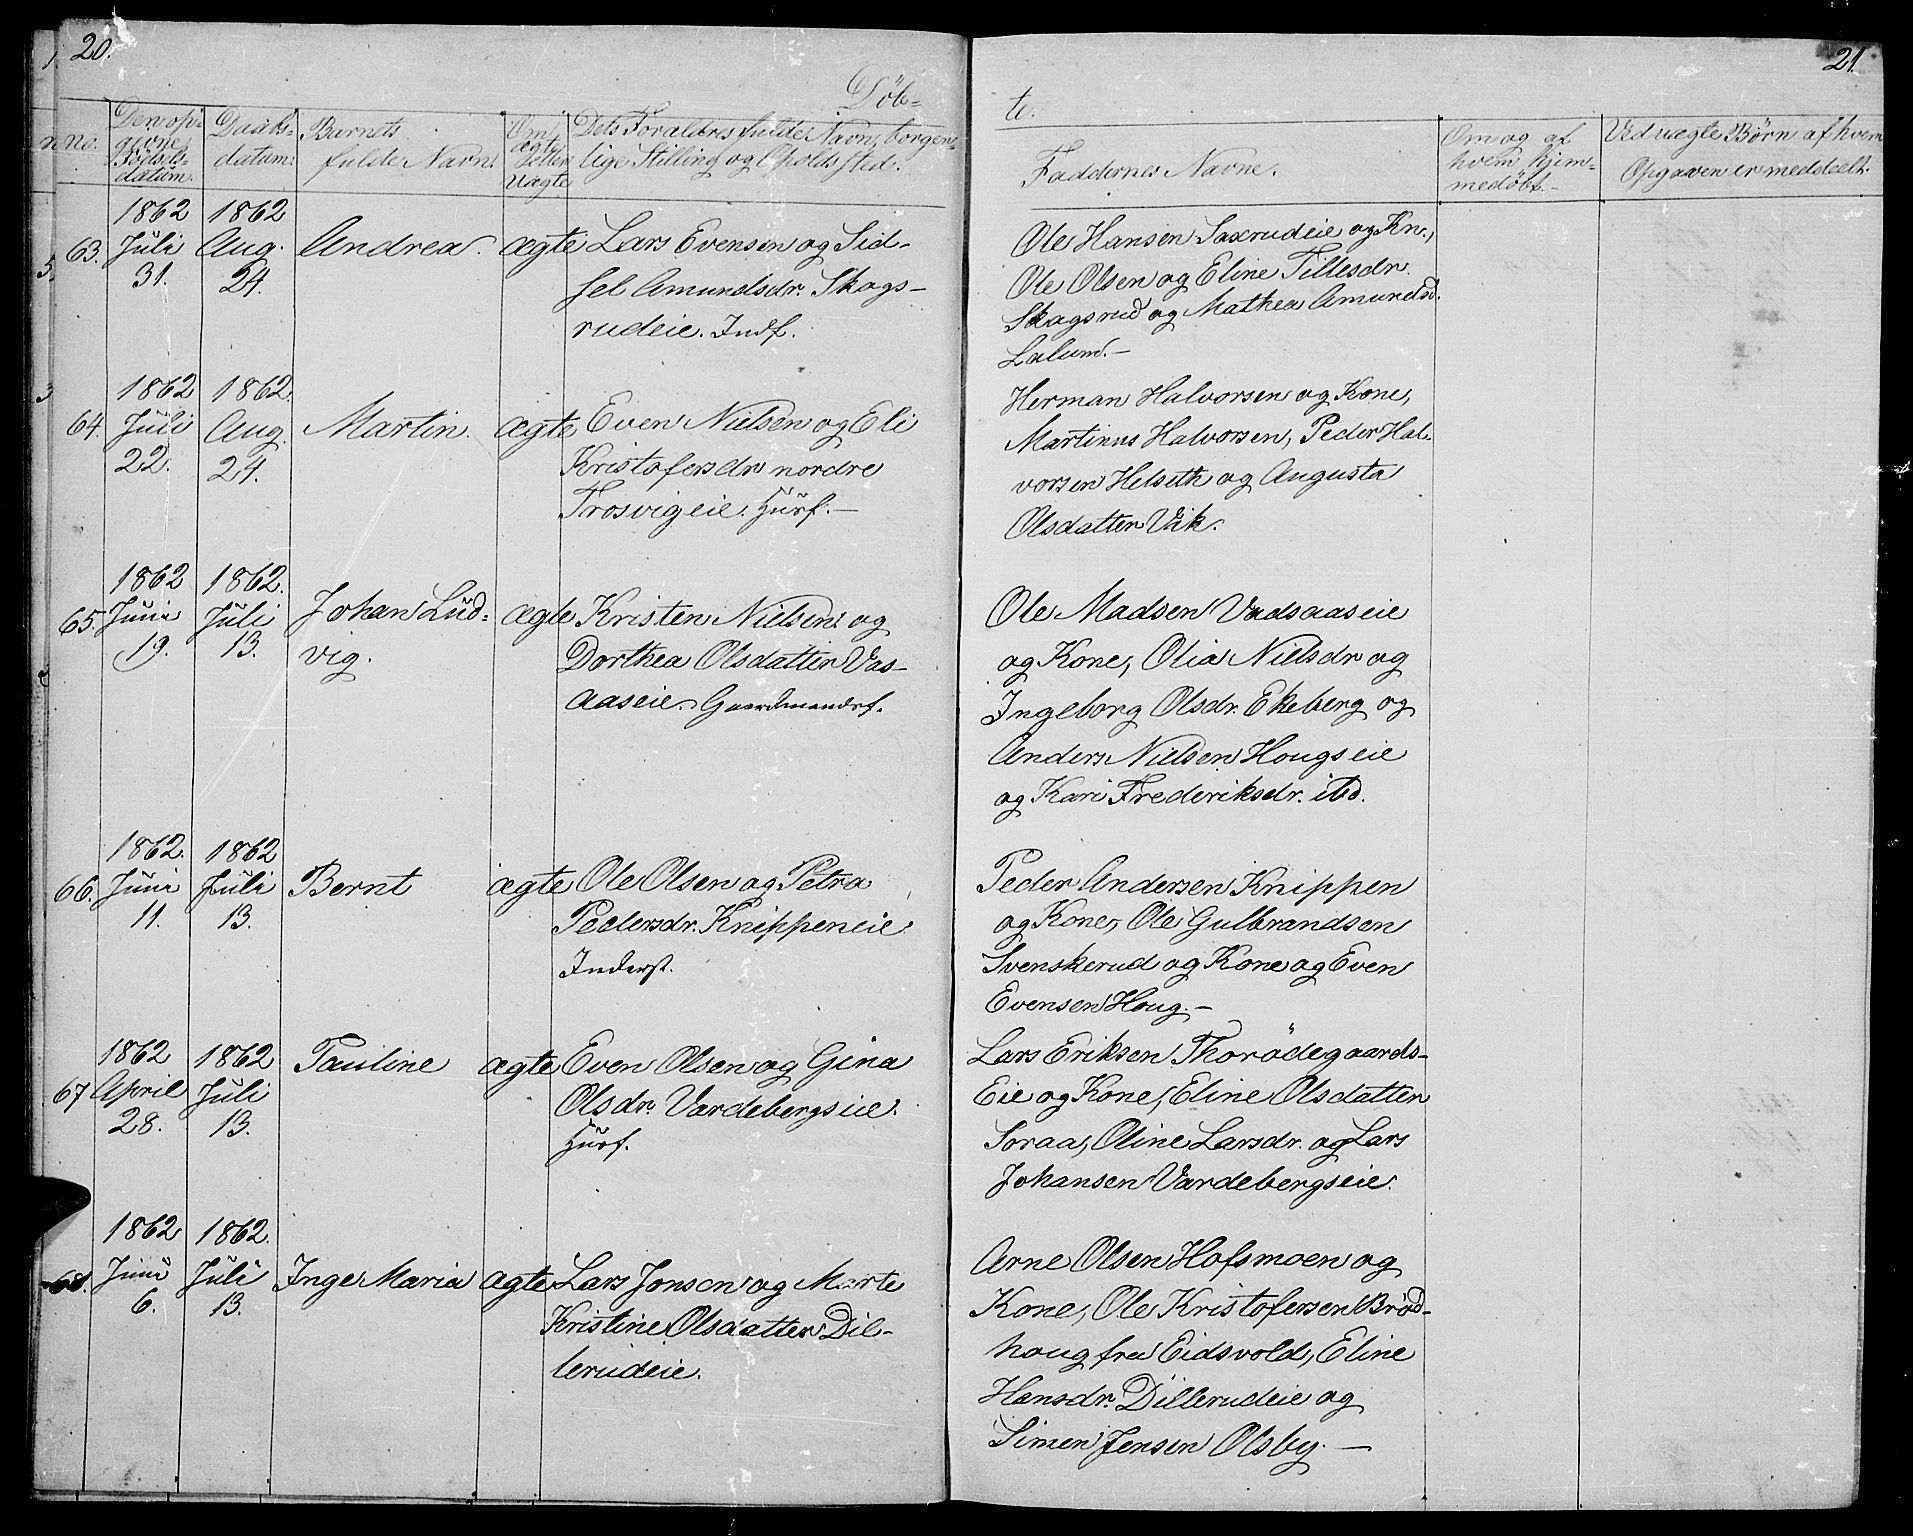 20.
Döb-
no.
Den op-
givne
Födsels-
datum.
Daabs-
datum.
Barnets
fulde Navn.
Om
ægte
eller
uægte
Dets Foraldres fulde Navn, borgen-
lige Stilling og Opholdssted.
1862 1862
63. Juli Aug. Andrea. ægte Lars Evensen og Sid-
31. 24. sel Amundsdr. Skags-
rudeie. Indf.
1862 1862.
64. Juli Aug. Martin. ægte Even Nielsen og Eli
22. 24. Kristofersdr. nordre
Trosvigeie. Husf. —
1862 1862.
65. Juni Juli Johan Lud- ægte Kristen Nielsen og
19. 13. vig. Dorthea Olsdatter Vas-
aaseie. Gaardmandsf.
1862. 1862
66. Juni Juli Bernt ægte Ole Olsen og Petra
11. 13. Pedersdr. Knippeneie
Inderst.
1862 1862 Pauline ægte Even Olsen og Gina
67 April Juli Olsdr. Vardebergseie.
28. 13. Husf.
1862 1862.
68. Juni Juli Inge Maria ægte Lars Jonsen og Marte
6. 13. Kristine Olsdatter Dil-
lerudeie.
21
te.
Faddernes Navne.
Om og af
hvem hjem-
medöbt.-
Ved uægte Börn af hvem
Opgaven er meddeelt.
Ole Hansen Saxrudeie og Kn.,
Ole Olsen og Eline Tillesdr.
Skagsrud og Mathea Amundsd.
Lalum. —
Herman Halvorsen og Kone,
Martinus Halvorsen, Peder Hal-
vorsen Helseth og Augusta
Olsdatter Vik.
Ole Madsen Vadsaaseie
og Kone, Olia Nielsdr og
Ingeborg Olsdr. Ekeberg og
Anders Nielsen Hougseie
og Kari Frederiksdr. ibd.
Peder Andersen Knippen
og Kone, Ole Gulbrandsen
Svenskerud og Kone og Even
Evensen Houg. —
Lars Eriksen Thorödegaards-
Eie og Kone, Eline Olsdatter
Soraa, Oline Larsdr. og Lars
Johansen Vardebergseie.
Arne Olsen Hofsmoen og
Kone, Ole Kristofersen Bröd-
houg fra Eidsvold, Eline
Hansdr. Dillerudeie og
Simen Jensen Olsby. —